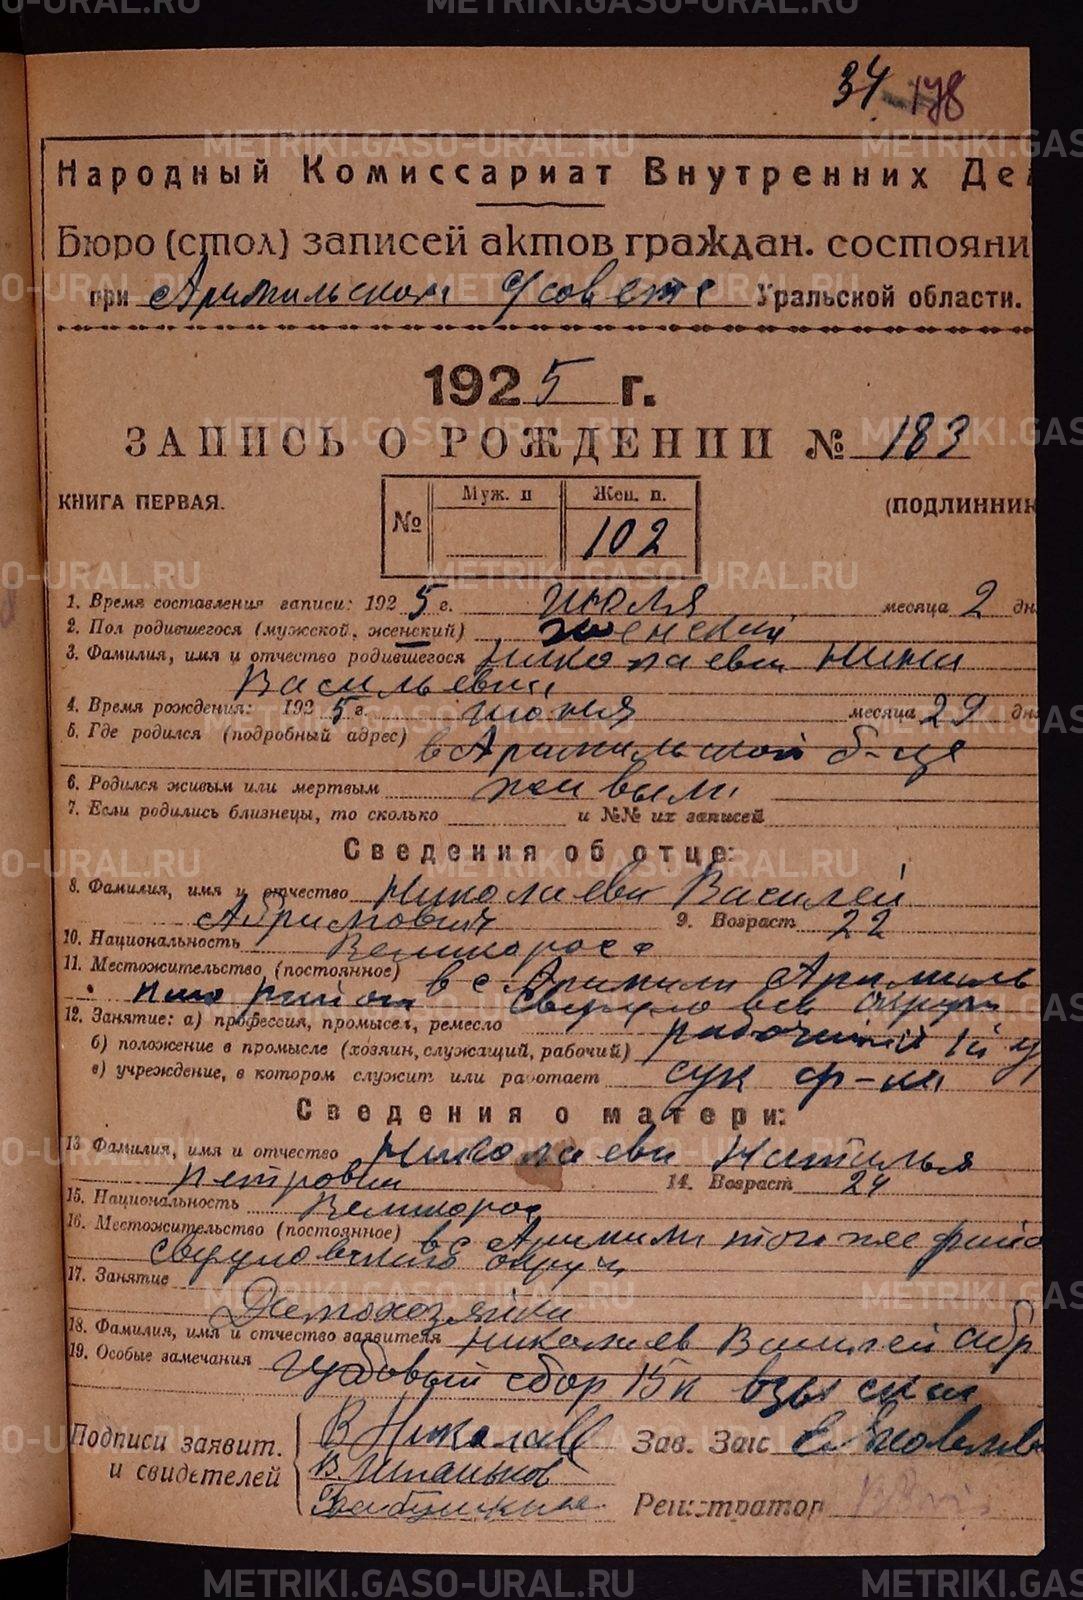 34 178
Народный Комиссариат Внутренних Де
Бюро (стол) записей актов граждан. состояни
при Арамильском с/совете Уральской области.
1925 г.
ЗАПИСЬ О РОЖДЕНИИ № 183
КНИГА ПЕРВАЯ. № Муж. п Жен. п. (ПОДЛИННИК
102
1. Время составления записи: 1925 г. июля месяца 2 дн
2. Пол родившегося (мужской, женский) женский
3. Фамилия, имя и отчество родившегося Николаева Нина
Васильевна
4. Время рождения: 1925 г. июня месяца 29 дн
5. Где родился (подробный адрес) в Арамильской б-це
6. Родился живым или мертвым живым
7. Если родились близнецы, то сколько и №№ их записей
Сведения об отце:
8. Фамилия, имя и отчество Николаев Василий
Абрамович 9. Возраст 22
10. Национальность Великоросс
11. Местожительство (постоянное) в с Арамили Арамиль
ского района Свердловск округа
12. Занятие: а) профессия, промысел, ремесло
б) положение в промысле (хозяин, служащий, рабочий) рабочий
в) учреждение, в котором служит или работает сук ф-ка
Сведения о матери:
13 Фамилия, имя и отчество Николаева Наталья
Петровна 14. Возраст 24
15. Национальность Великорос
16. Местожительство (постоянное) в с Арамили того же райо
Свердловского округа
17. Занятие
Домохозяйка
18. Фамилия, имя и отчество заявителя Николаев Василий Абр
19. Особые замечания Гербовый сбор 15 к взыскан
Подписи заявит. В Николаев Зав. Загс
и свидетелей
Регистратор
METRIKI.GASO-URAL.RU